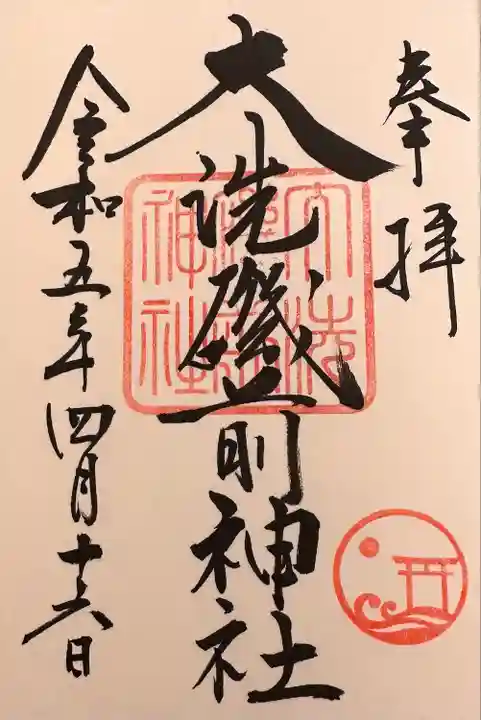 奉拝
大洗磯前神社
令和五年四月十六日
大洗
磯前
神社